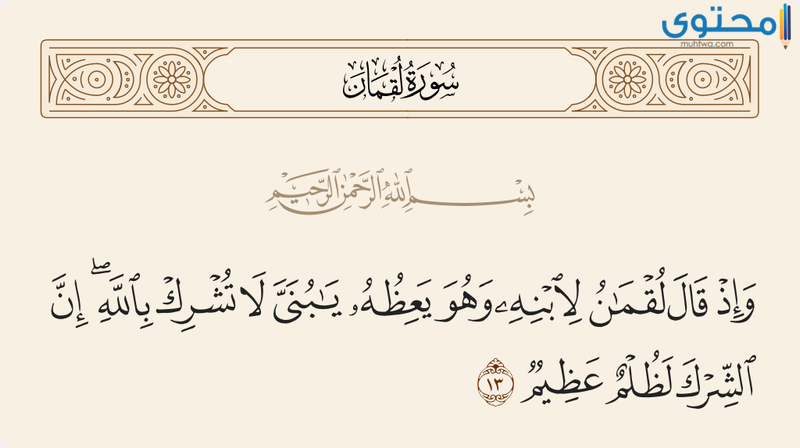 محتوى
muhtwa.com
سُورَةُ لُقْمَان
بِسْمِ ٱللَّهِ ٱلرَّحْمَٰنِ ٱلرَّحِيمِ
وَإِذْ قَالَ لُقْمَـٰنُ لِٱبْنِهِۦ وَهُوَ يَعِظُهُۥ يَـٰبُنَىَّ لَا تُشْرِكْ بِٱللَّهِ ۖ إِنَّ
ٱلشِّرْكَ لَظُلْمٌ عَظِيمٌ ١٣